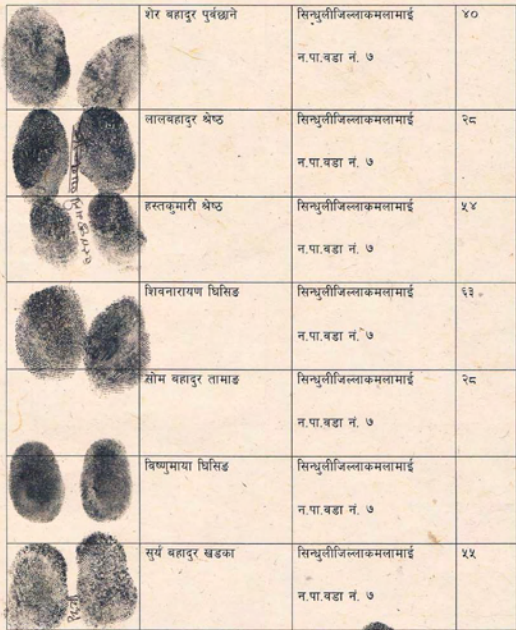 शेर बहादुर पुर्वछाने सिन्धुलीजिल्लाकमलामाई ४०
न.पा.वडा नं. ७
लालबहादुर श्रेष्ठ सिन्धुलीजिल्लाकमलामाई २८
न.पा.वडा नं. ७
हस्तकुमारी श्रेष्ठ सिन्धुलीजिल्लाकमलामाई ५४
न.पा.वडा नं. ७
शिवनारायण घिसिङ सिन्धुलीजिल्लाकमलामाई ६३
न.पा.वडा नं. ७
सोम बहादुर तामाङ सिन्धुलीजिल्लाकमलामाई २८
न.पा.वडा नं. ७
विष्णुमाया घिसिङ सिन्धुलीजिल्लाकमलामाई
न.पा.वडा नं. ७
सुर्य बहादुर खडका सिन्धुलीजिल्लाकमलामाई ५५
न.पा.वडा नं. ७